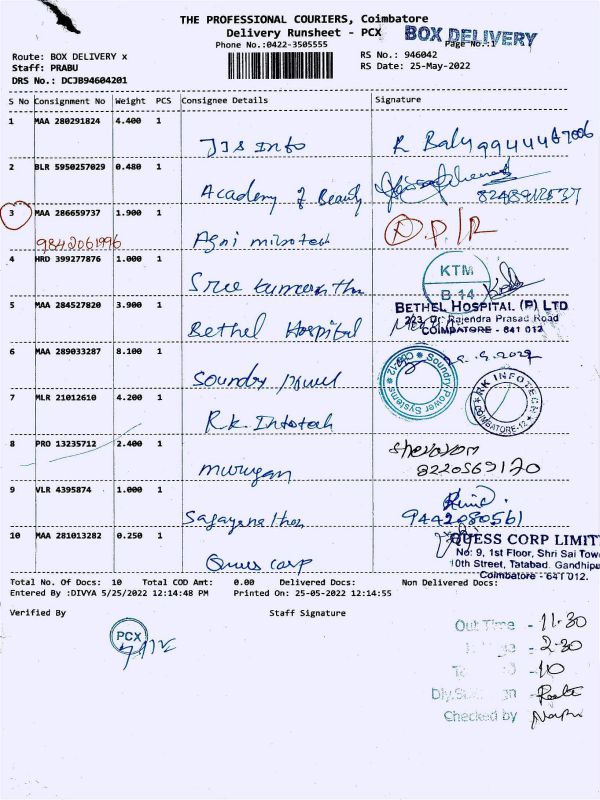 THE PROFESSIONAL COURIERS, Coimbatore
Delivery Runsheet - PCX
BOX DELIVERY
Phone No.:0422-3505555
Page No.:1
Route: BOX DELIVERY x
RS No.: 946042
Staff: PRABU
RS Date: 25-May-2022
DRS No.: DCJB94604201
S No Consignment No Weight PCS Consignee Details Signature
1 MAA 280291824 4.400 1
JJS Info R Balu
2 BLR 5950257029 0.480 1
Academy of Beauty
3 MAA 286659737 1.900 1
9842061996 Agni D.P/R
4 HRD 399277876 1.000 1
KTM
B-14
Sree
5 MAA 284527820 3.900 1
BETHEL HOSPITAL (P) LTD
223, Dr. Rajendra Prasad Road
COIMBATORE - 641 012
Bethel Hospital
6 MAA 289033287 8.100 1
Soundry Power Systems CBE-12
RK INFOTECH COIMBATORE-12
7 MLR 21012610 4.200 1
R.K. Infotech
8 PRO 13235712 2.400 1
murugan 8220569170
9 VLR 4395874 1.000 1
9442080561
10 MAA 281013282 0.250 1
QUESS CORP LIMIT
No: 9, 1st Floor, Shri Sai Tow
10th Street, Tatabad. Gandhipu
Coimbatore - 641 012.
Quess corp
Total No. Of Docs: 10 Total COD Amt: 0.00 Delivered Docs: Non Delivered Docs:
Entered By :DIVYA 5/25/2022 12:14:48 PM Printed On: 25-05-2022 12:14:55
Verified By Staff Signature
PCX
Out Time - 11.30
- 2-30
- 10
Checked by